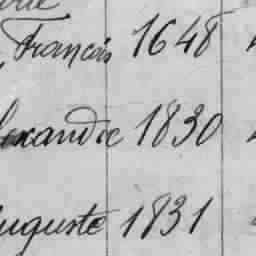 François 1648
exandre 1830
uguste 1831